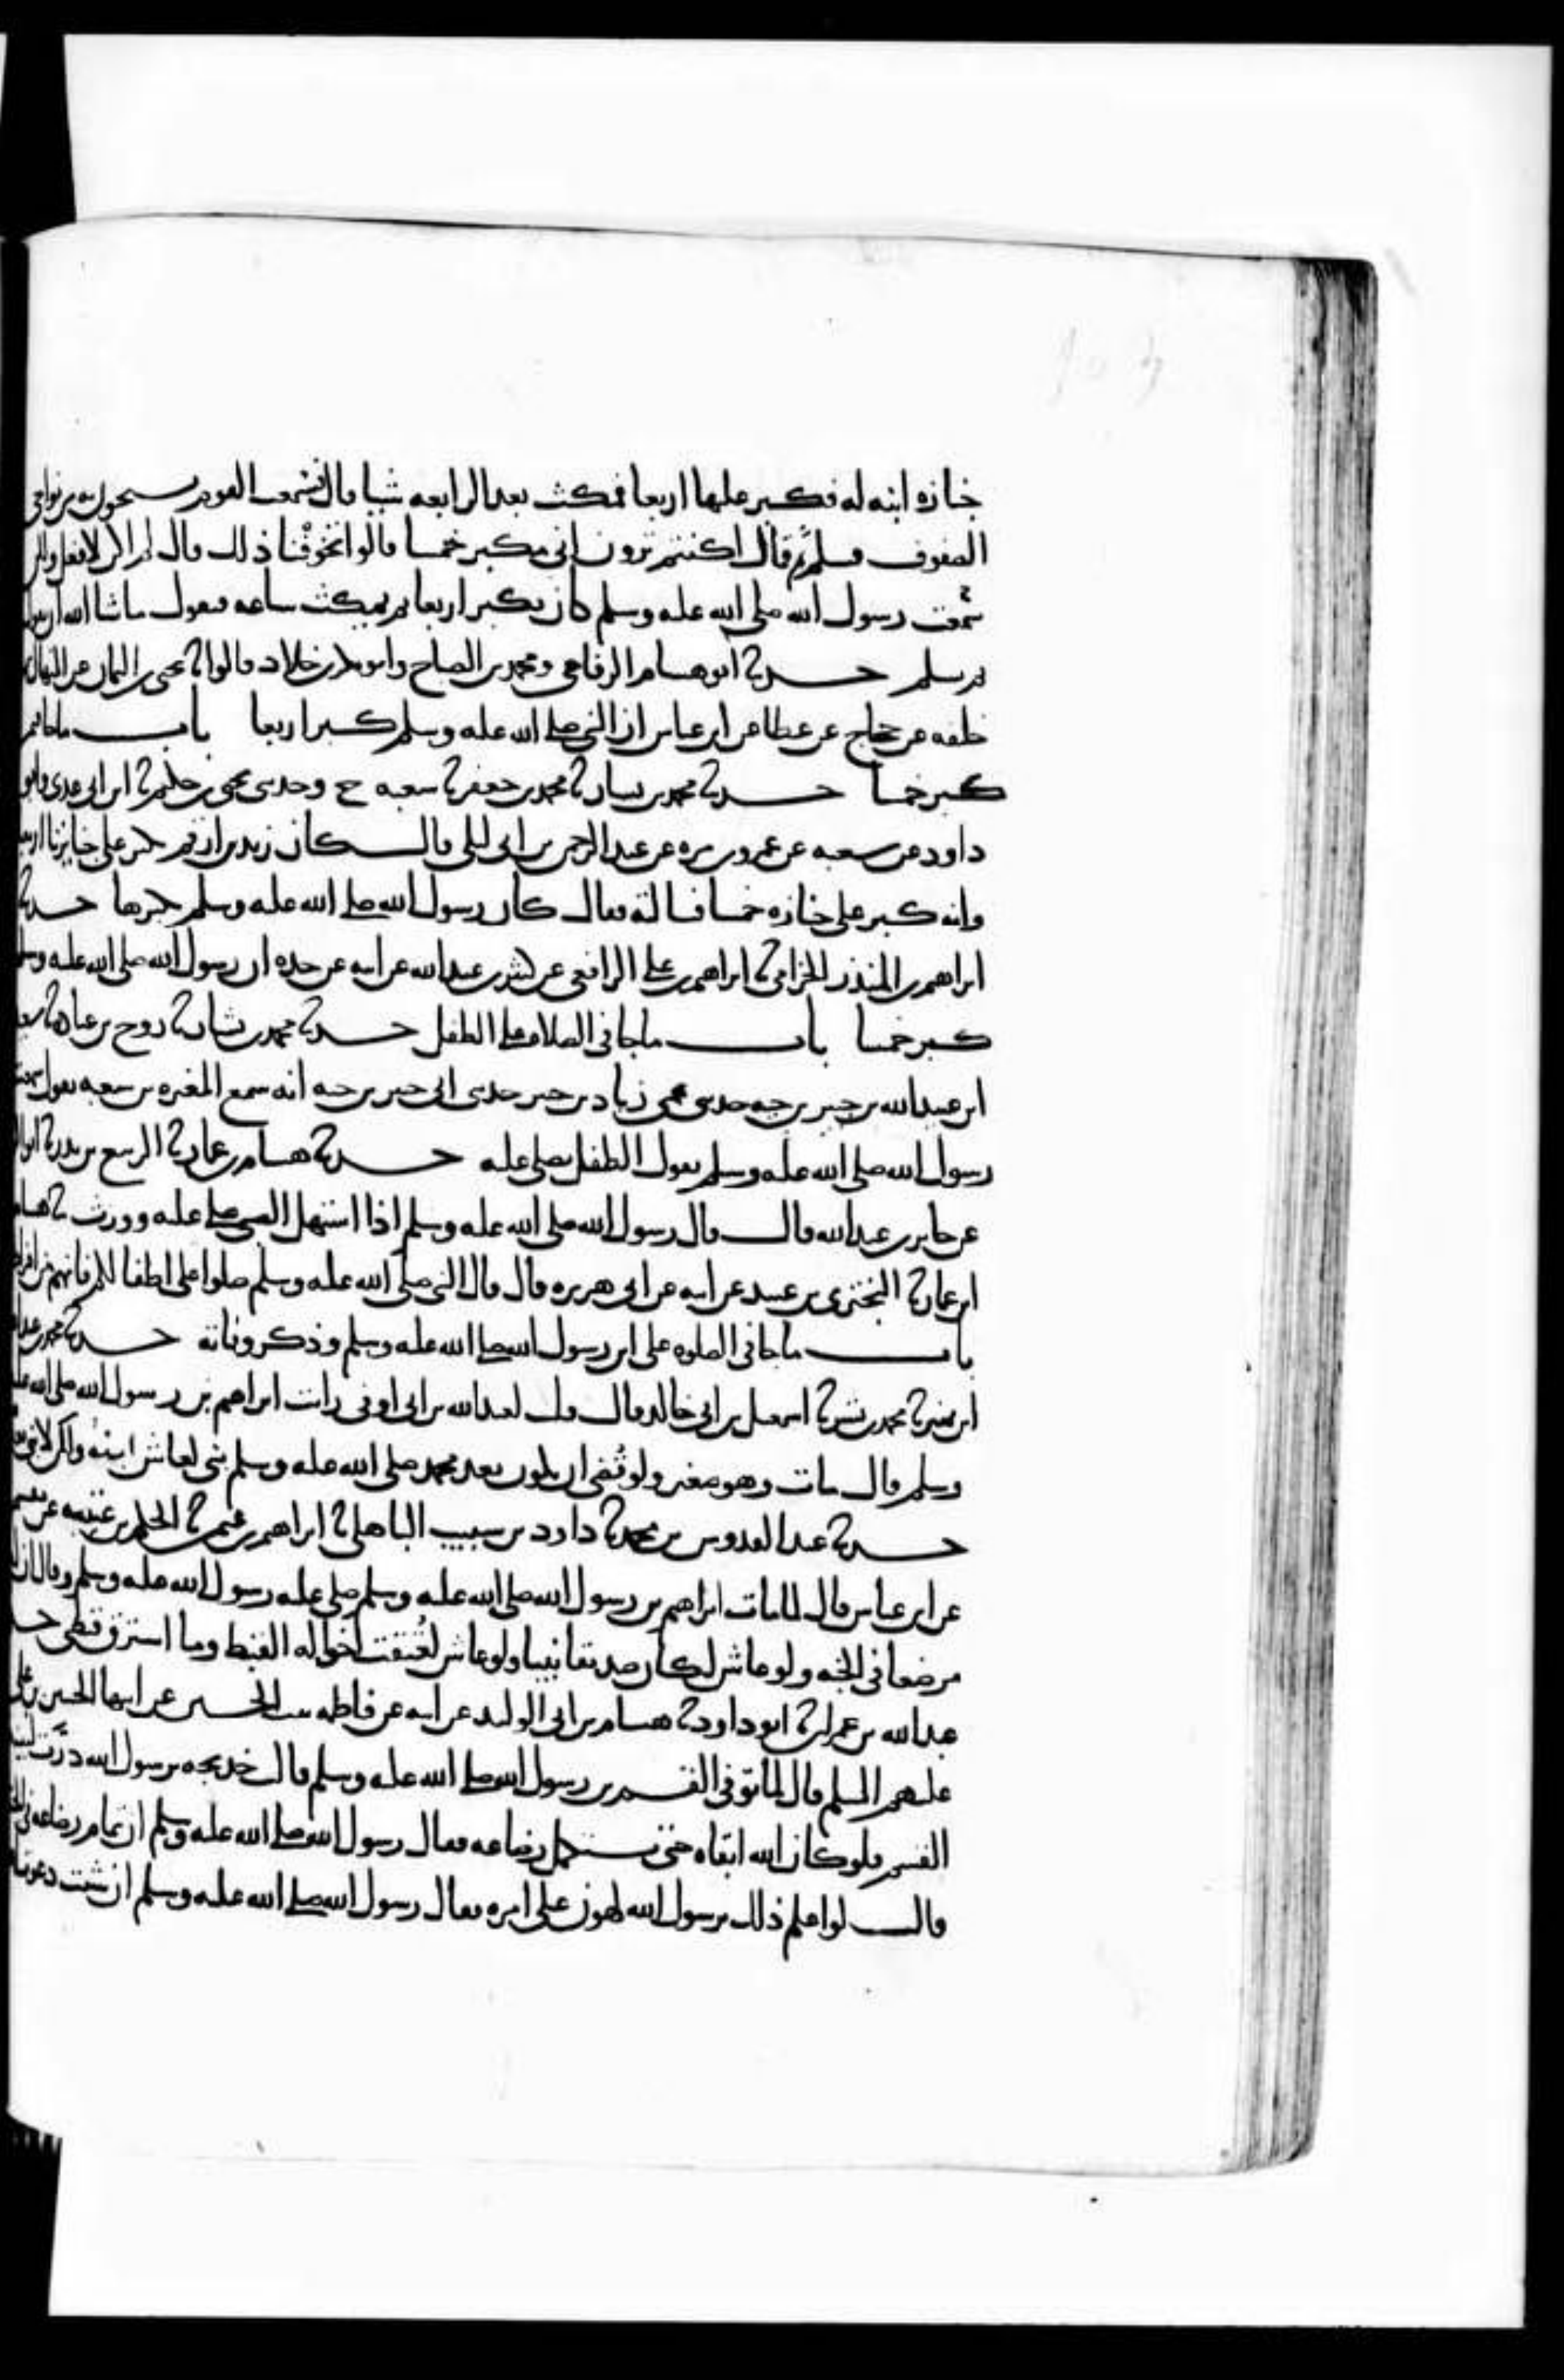 جنازه ابنه له فكبر عليها اربعا فمكث بعد الرابعه شيا قال فسمعت القوم يسبحون به من نواحي
الصفوف فسلم ثم قال اكنتم ترون اني مكبر خمسا قالوا تخوفنا ذلك قال لم اكن لافعل ولكن
سمعت رسول الله صلى الله عليه وسلم كان يكبر اربعا ثم يمكث ساعه فيقول ماشا الله ان يقول
ثم يسلم حدثنا ابو هشام الرفاعي ومحمد بن الصباح وابو بكر بن خلاد قالوا ثنا يحيى بن اليمان عن المنهال بن
خليفه عن حجاج عن عطا عن ابن عباس ان النبي صلى الله عليه وسلم كبر اربعا باب ماجا فيمن
كبر خمسا حدثنا محمد بن بشار ثنا محمد بن جعفر ثنا شعبه ح وحدثنى يحيى بن حكيم ثنا ابن ابى عدى وابو
داود عن شعبه عن عمرو بن مره عن عبد الرحمن بن ابى ليلى قال كان زيد بن ارقم يكبر على جنايزنا اربعا
وانه كبر على جنازه خمسا فسالته فقال كان رسول الله صلى الله عليه وسلم يكبرها حدثنا
ابراهيم بن المنذر الحزامي ثنا ابراهيم بن على الرافعي عن كثير بن عبد الله عن ابيه عن جده ان رسول الله صلى الله عليه وسلم
كبر خمسا باب ماجا في الصلاة على الطفل حدثنا محمد بن بشار ثنا روح بن عباده ثنا سعيد
ابن عبيد الله بن جبير بن حيه حدثنى عمى زياد بن جبير حدثنى ابى جبير بن حيه انه سمع المغيره بن شعبه يقول سمعت
رسول الله صلى الله عليه وسلم يقول الطفل يصلى عليه حدثنا هشام بن عمار ثنا الربيع بن بدر ثنا ابو الزبير
عن جابر بن عبد الله قال قال رسول الله صلى الله عليه وسلم اذا استهل الصبي صلى عليه وورث ثنا هشام
ابن عمار ثنا البختري بن عبيد عن ابيه عن ابى هريره قال قال النبى صلى الله عليه وسلم صلوا على اطفالكم فانهم من افراطكم
باب ماجا في الصلوه على ابن رسول الله صلى الله عليه وسلم وذكر وفاته حدثنا محمد بن عبد الله
ابن نمير ثنا محمد بن بشر ثنا اسمعيل بن ابى خالد قال قلت لعبد الله بن ابى اوفى رايت ابراهيم بن رسول الله صلى الله عليه
وسلم قال مات وهو صغير ولو قضى ان يكون بعد محمد صلى الله عليه وسلم نبى لعاش ابنه ولكن لا نبى بعده
حدثنا عبد القدوس بن محمد ثنا داود بن شبيب الباهلى ثنا ابراهيم بن عثمن ثنا الحكم بن عتيبه عن مقسم
عن ابن عباس قال لما مات ابراهيم بن رسول الله صلى الله عليه وسلم صلى عليه رسول الله صلى الله عليه وسلم وقال ان له
مرضعا في الجنه ولو عاش لكان صديقا نبيا ولو عاش لعتقت اخواله القبط وما استرق قبطى حدثنا
عبد الله بن عمران ثنا ابو داود ثنا هشام بن ابى الوليد عن ابيه عن فاطمه بنت الحسين عن ابيها الحسين بن على
عليهم السلم قال لما توفى القسم بن رسول الله صلى الله عليه وسلم قالت خديجه يرسول الله درت لبينة
القسم فلو كان الله ابقاه حتى يستكمل رضاعه فقال رسول الله صلى الله عليه وسلم ان تمام رضاعه في الجنه
قالت لو اعلم ذلك يرسول الله لهون على امره فقال رسول الله صلى الله عليه وسلم ان شئت دعوت الله